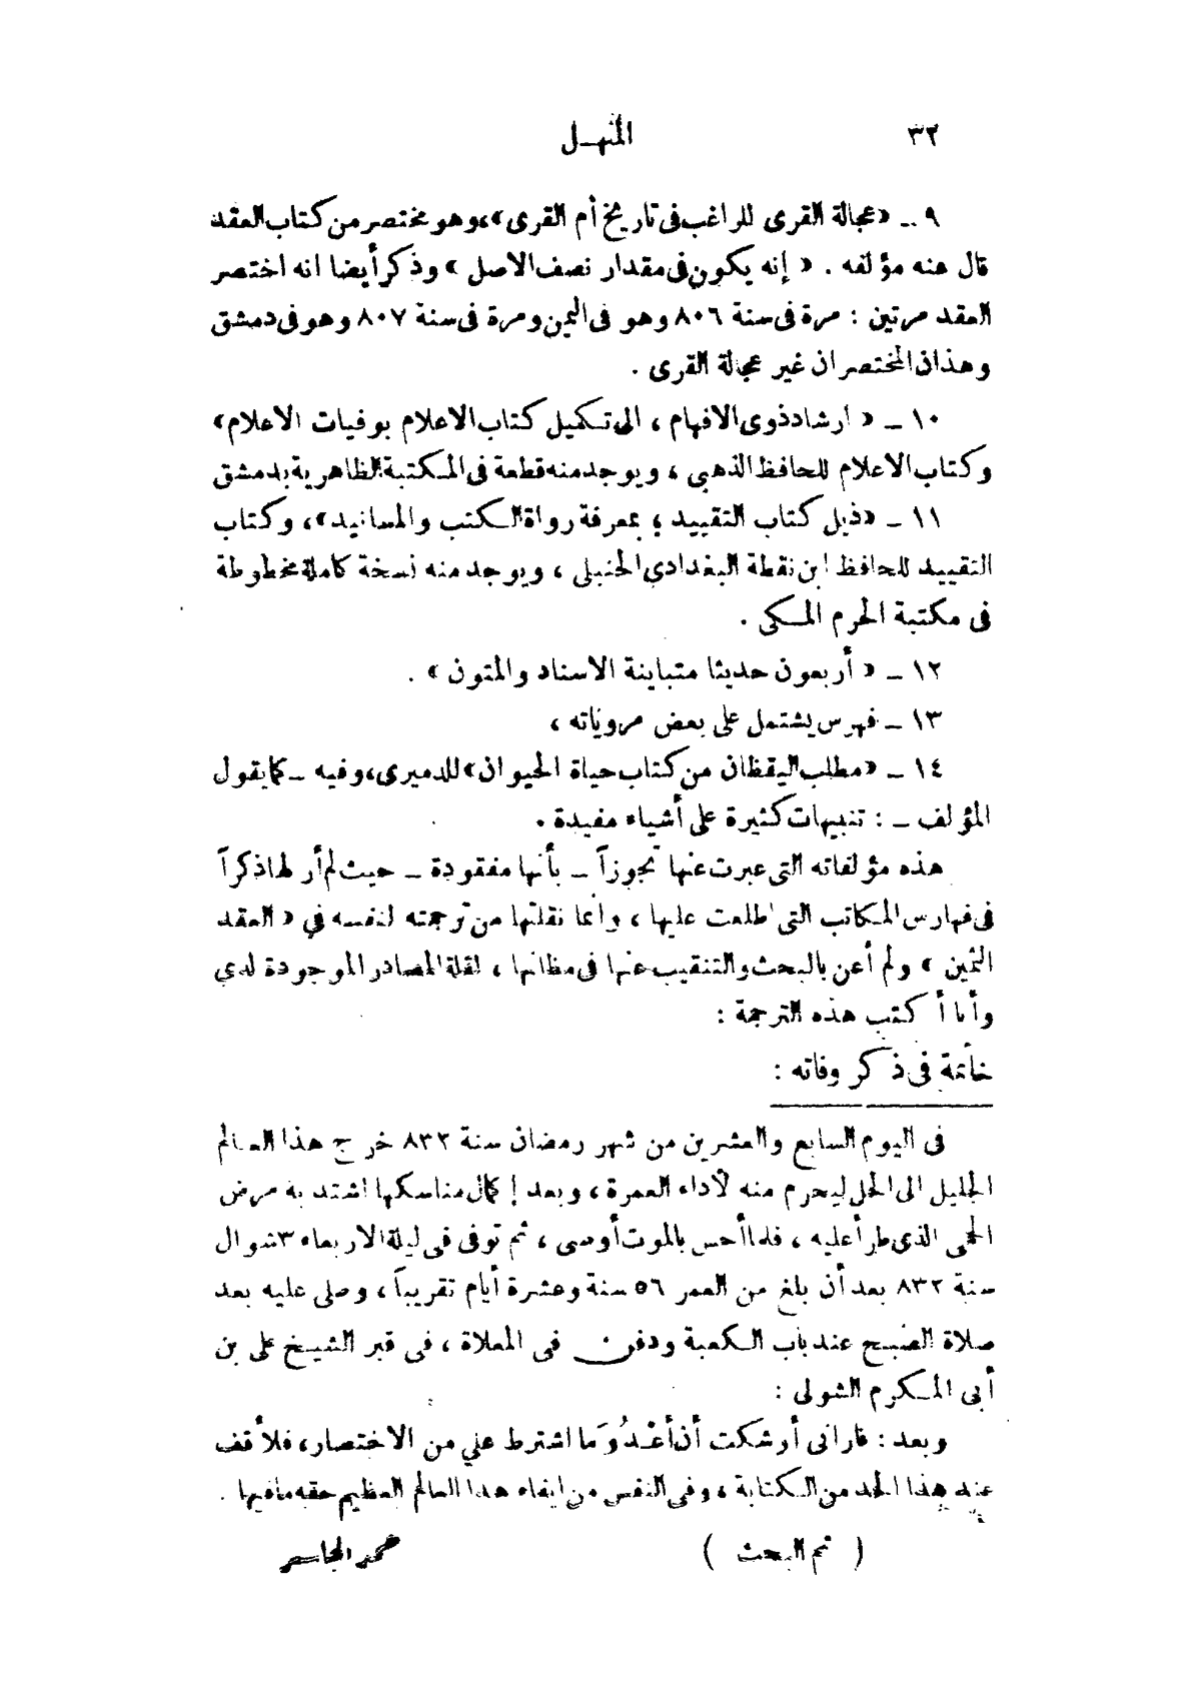 ٣٢ المنهل
٩ ـ «عجالة القرى للراغب فى تاريخ أم القرى»، وهو مختصر من كتاب العقد
قال عنه مؤلفه . « إنه يكون فى مقدار نصف الاصل » وذكر أيضا انه اختصر
العقد مرتين : مرة فى سنة ٨٠٦ وهو فى اليمن ومرة فى سنة ٨٠٧ وهو فى دمشق
وهذان المختصران غير عجالة القرى .
١٠ ـ « ارشاد ذوى الافهام ، الى تكميل كتاب الاعلام بوفيات الاعلام»
وكتاب الاعلام للحافظ الذهبي ، ويوجد منه قطعة فى المكتبة الظاهرية بدمشق
١١ ـ «ذيل كتاب التقييد ؛ بمعرفة رواة الكتب والمسانيد»، وكتاب
التقييد للحافظ ابن نقطة البغدادي الحنبلى ، ويوجد منه نسخة كاملة مخطوطة
فى مكتبة الحرم المكى .
١٢ ـ « أربعون حديثا متباينة الاسناد والمتون » .
١٣ ـ فهرس يشتمل على بعض مروياته ،
١٤ ـ «مطلب اليقظان من كتاب حياة الحيوان» للدميرى، وفيه ـ كما يقول
المؤلف ـ : تنبيهات كثيرة على أشياء مفيدة .
هذه مؤلفاته التى عبرت عنها تجوزاً ـ بأنها مفقودة ـ حيث لم أر لها ذكراً
فى فهارس المكاتب التى اطلعت عليها ، وانما نقلتها من ترجمته لنفسه في « العقد
الثمين » ولم أعن بالبحث والتنقيب عنها فى مظانها ، لقلة المصادر الموجودة لدي
وأنا أكتب هذه الترجمة :
خاتمة فى ذكر وفاته :
فى اليوم السابع والعشرين من شهر رمضان سنة ٨٣٢ خرج هذا العالم
الجليل الى الحل ليحرم منه لأداء العمرة ، وبعد إكمال مناسكها اشتد به مرض
الحمى الذى طرأ عليه ، فلما أحس بالموت أوصى ، ثم توفى فى ليلة الاربعاء ٣ شوال
سنة ٨٣٢ بعد أن بلغ من العمر ٥٦ سنة وعشرة أيام تقريباً ، وصلى عليه بعد
صلاة الصبح عند باب الكعبة ودفن فى المعلاة ، فى قبر الشيخ على بن
أبى المكرم الشولى :
وبعد : فارانى أوشكت أن أعْدُوَ ما اشترط علي من الاختصار، فلأقف
عند هذا الحد من الكتابة ، وفى النفس من ايفاء هذا العالم العظيم حقه ما فيها .
( تم البحث ) حمد الجاسر